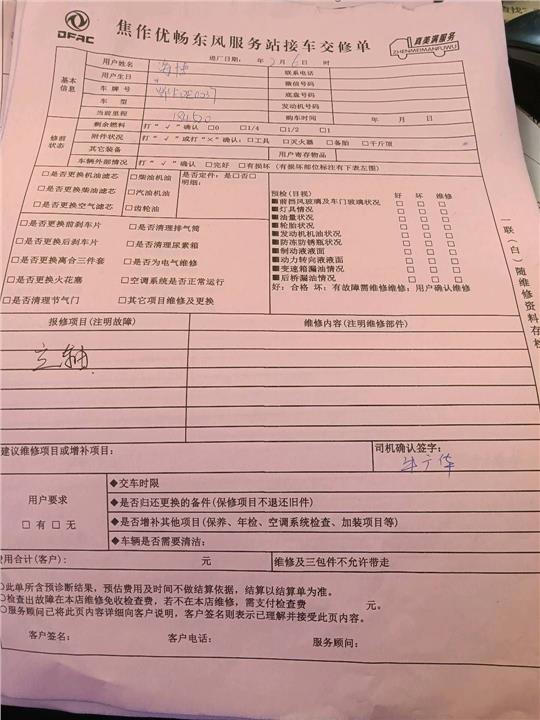 DFAC
焦作优畅东风服务站接车交修单
真美满服务
ZHENMEIMANFUWU
进厂日期: 年 2月6日 时
基本信息
用户姓名 联系电话
用户生日 微信号码
车牌号 底盘号码
车型 发动机号码
当前里程 购车时间 年 月 日
修前状态
剩余燃料 打“√”确认 □0 □1/4 □1/2 □1
附件状况 打“√”或打“×”确认:□工具 □灭火器 □备胎 □千斤顶
其它装备 用户寄存物品
车辆外部情况 打“√”确认 □完好 □有损坏(有损部位标注有下表左图)
□是否更换机油滤芯 □柴油机油 是否定件:是□否□
□是否更换柴油滤芯 □汽油机油 明细:
□是否更换空气滤芯 □齿轮油
□是否更换前刹车片 □是否清理排气筒
□是否更换后刹车片 □是否清理尿素箱
□是否更换离合三件套 □是否为电气维修
□是否更换火花塞 □空调系统是否正常运行
□是否清理节气门 □其它项目维修及更换
预检(目视) 好 坏 维修
■前挡风玻璃及车门玻璃状况 □ □ □
■灯具情况 □ □ □
■油量状况 □ □ □
■轮胎状况 □ □ □
■发动机机油状况 □ □ □
■防冻防锈瓶状况 □ □ □
■制动液液面 □ □ □
■动力转向液液面 □ □ □
■变速箱漏油情况 □ □ □
■后桥漏油情况 □ □ □
好:合格 坏:有故障需维修维修:用户确认维修
一联(白)随维修资料存档
报修项目(注明故障) 维修内容(注明维修部件)
立轴
建议维修项目或增补项目: 司机确认签字:
用户要求
□有□无
◆交车时限
◆是否归还更换的备件(保修项目不退还旧件)
◆是否增补其他项目(保养、年检、空调系统检查、加装项目等)
◆车辆是否需要清洁:
费用合计(客户): 元 维修及三包件不允许带走
○此单所含预诊断结果,预估费用及时间不做结算依据,结算以结算单为准。
○检查出故障在本店维修免收检查费,若不在本店维修,需支付检查费 元。
○服务顾问已将此页内容详细向客户说明,客户签名则表示已理解并接受此页内容。
客户签名: 客户电话: 服务顾问: